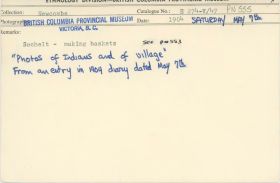 ETHNOLOGY DIVISION—BRITISH COLUMBIA PROVINCIAL MUSEUM
Collection: Newcombe Catalogue No.: E 274-8/47 PN 555
Photographer BRITISH COLUMBIA PROVINCIAL MUSEUM Date: 1904 SATURDAY MAY 7th
VICTORIA, B. C.
Remarks:
Sechelt - making baskets see PN553
"Photos of Indians and of village"
From an entry in 1904 diary dated May 7th